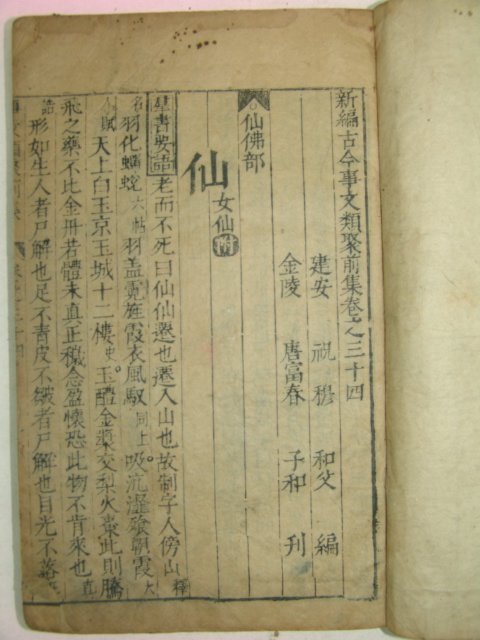 新編古今事文類聚前集卷之三十四
建安 祝穆 和父 編
金陵 唐富春 子和 刊
仙佛部
仙 女仙附
羣書要語 老而不死曰仙仙遷也遷入山也故制字人傍山釋
名羽化蟬蛻六帖羽盖霓旌霞衣風馭同上吸沆瀣飡朝霞大
人賦天上白玉京玉城十二樓史玉醴金漿交梨火棗此則騰
飛之藥不比金丹若體未真正穢念盈懷恐此物不肯來也真
誥形如生人者尸解也足不青皮不皺者尸解也目光不落